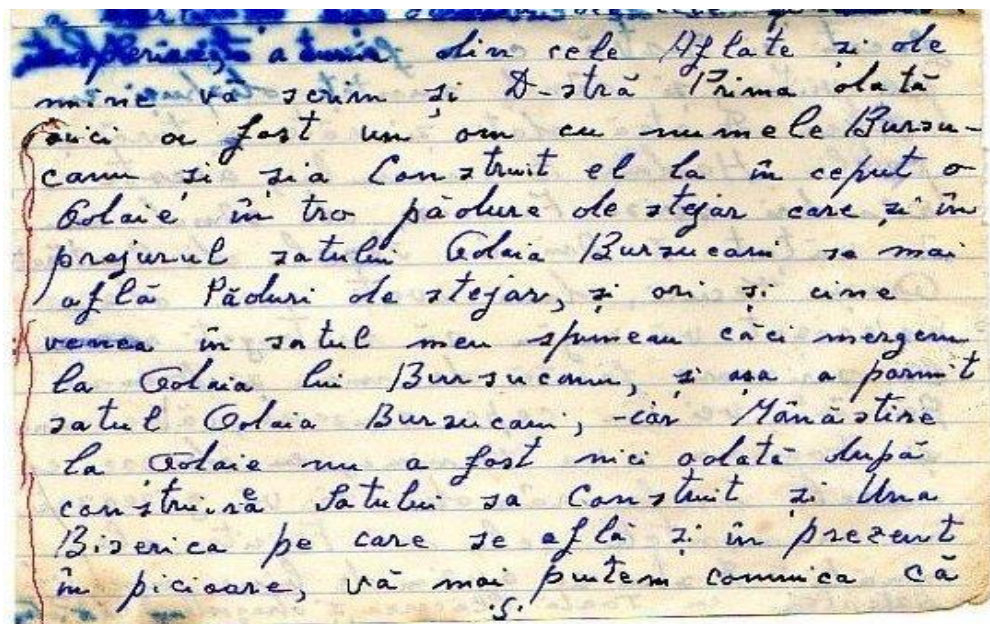 din cele Aflate și de
mine vă scrim și D-stră Prima dată
aici a fost un om cu numele Bursu-
canu si șia Construit el la în ceput o
Odaie în tro pădure de stejar care și în
prejurul satului Odaia Bursucani se mai
află Păduri de stejar, și ori și cine
venea în satul meu spuneau căci mergem
la Odaia lui Bursucanu, și așa a pornit
satul Odaia Bursucani, -iar Mănăstire
la Odaie nu a fost nici odată după
construirea Satului sa Construit și Una
Biserica pe care se află și în prezent
în picioare, vă mai putem comunica că
.5.